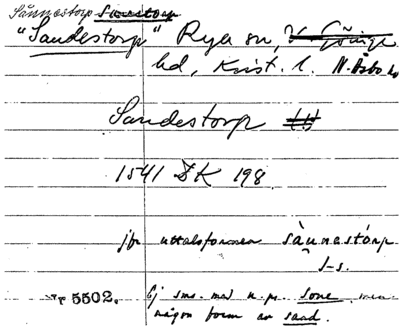 Sånnestorp Sånestorp
"Sandestorp" Rya sn, V. Göinge
hd, Krist. l. N. Åsbo hd
Sandestorp
1541 SK 198
jfr uttalsformen sånnestòrp
J-s.
5502. Ej sms. med n. pr. Sone, men
någon form av sand.